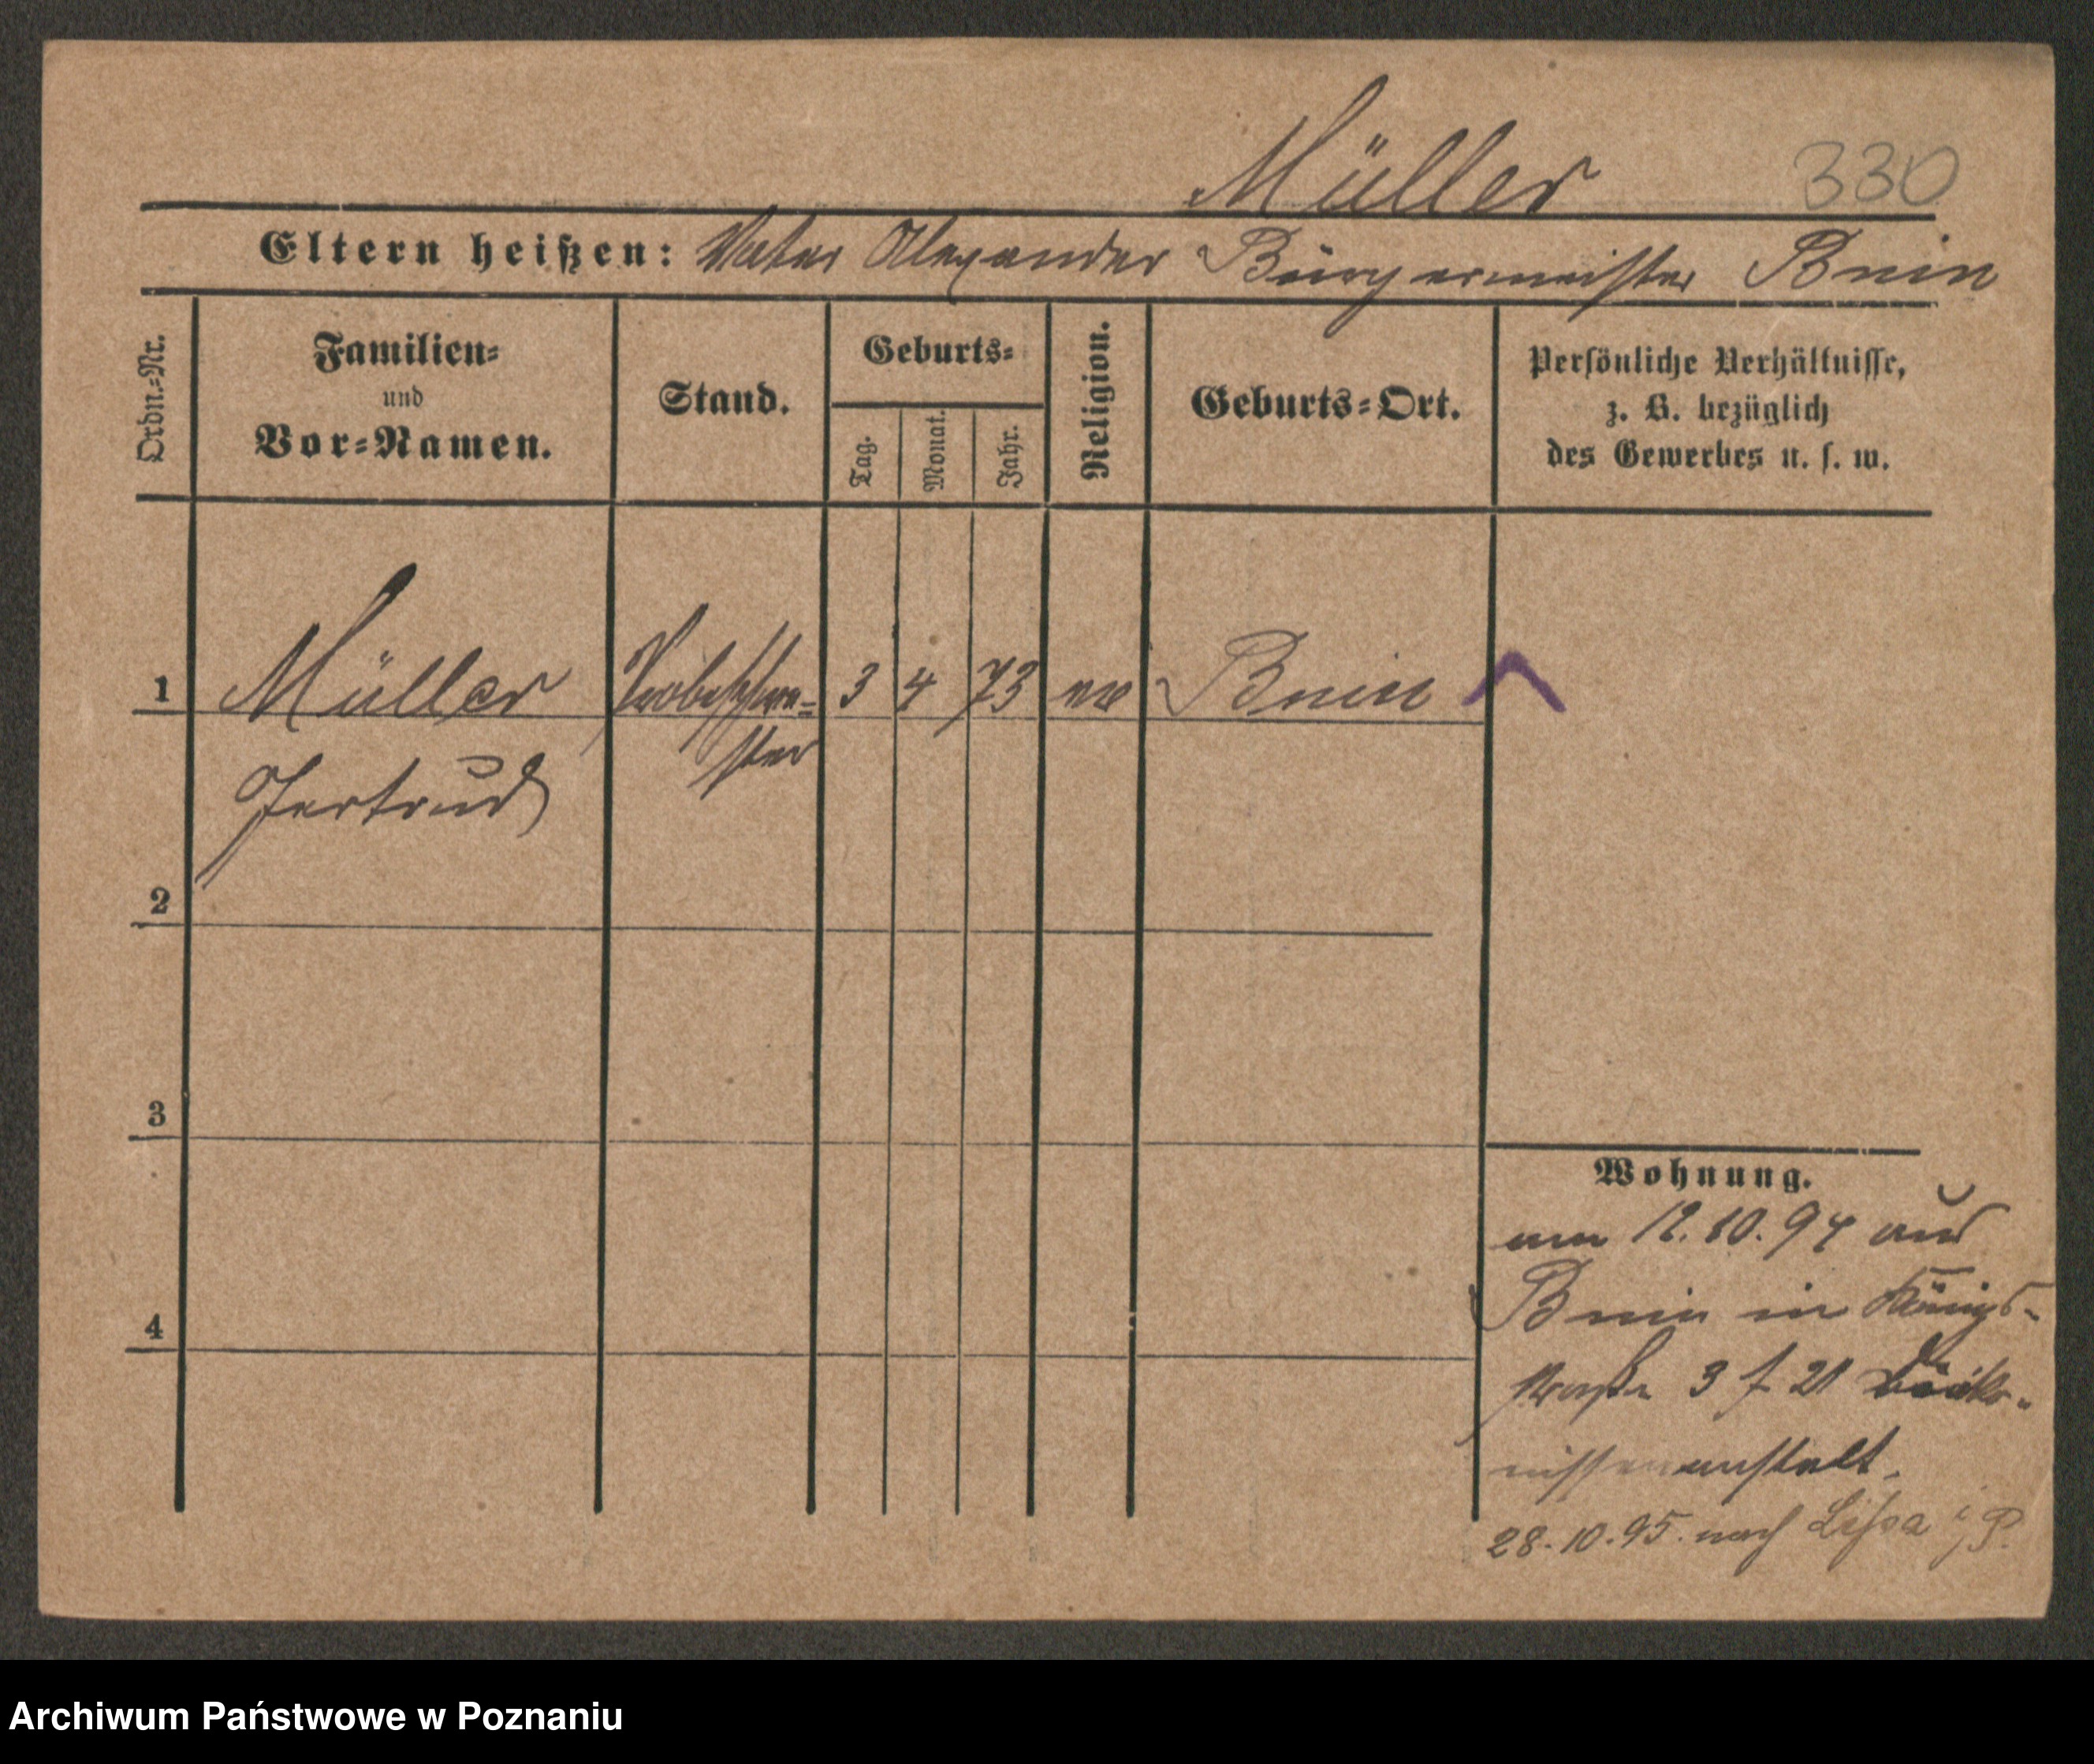 Müller 330
Eltern heißen: Vater Alexander Bürgermeister Bnin
Ordn.-Nr.
Familien-
und
Vor-Namen.
Stand.
Geburts-
Tag.
Monat.
Jahr.
Religion.
Geburts-Ort.
Persönliche Verhältnisse,
z. B. bezüglich
des Gewerbes u. s. w.
1 Müller Probeschwe- 3 4 73 ev Bnin
ster
Gertrud
2
3
4
Wohnung.
am 12.10.94 aus
Bnin in Königs-
straße 3 f 21 Diako-
nissenanstalt.
28.10.95. nach Lissa i/P.
Archiwum Państwowe w Poznaniu